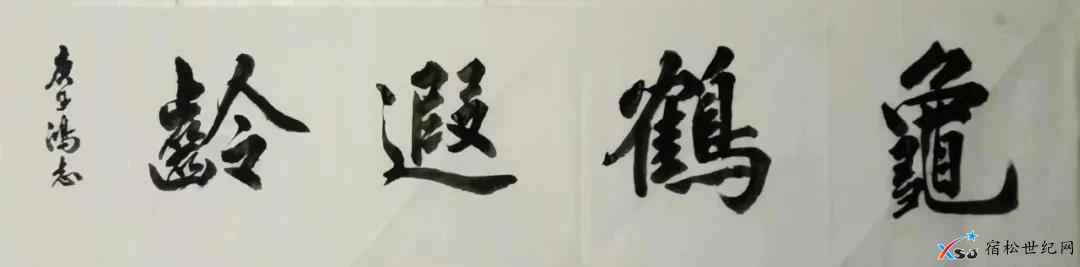 龜鶴遐齡
庚子鴻志
XSJ 宿松世纪网